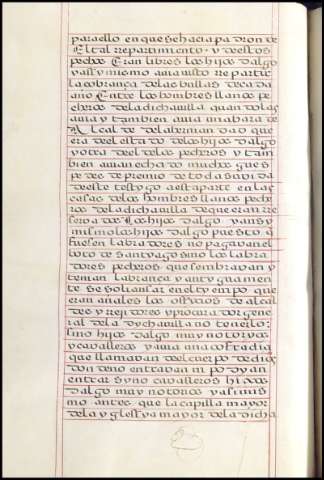 para ello en que se hacia padron de
El tal rrepartimiento · y de estos
pechos Eran libres los hijos dalgo
y assy mismo auia visto rrepartir
la cobrança de las bullas de cada
año Entre los hombres llanos pe
cheros de la dicha villa quando las
auia y tambien auia una bara de
Alcalde de la hermandad que
era del estado de los hijos dalgo
y otra del de los pecheros y tam
bien auian echado muchos gues
pedes de premio de toda su vida
de este testigo a esta parte en las
casas de los hombres llanos peche
ros de la dicha villa de que eran rre
seruados los hijos dalgo y ansy
mismo los hijos dalgo puesto q
fuesen labradores no pagavan el
boto de santyago sino los labra
dores pecheros que sembravan y
tenian labrança y antyguamen
te se solian sar en el tyempo que
eran añales los officios de alcal
des y rregidores y procurador gene
ral de la dycha villa no tenello
sino hijos dalgo muy notoryos
y cavalleros y auia una cofradia
que llamavan del cuerpo de dios
donde no entravan ni podyan
entrar syno cavalleros hijos
dalgo muy notorios y asimis
mo antes que la capilla mayor
de la yglesya mayor de la dicha